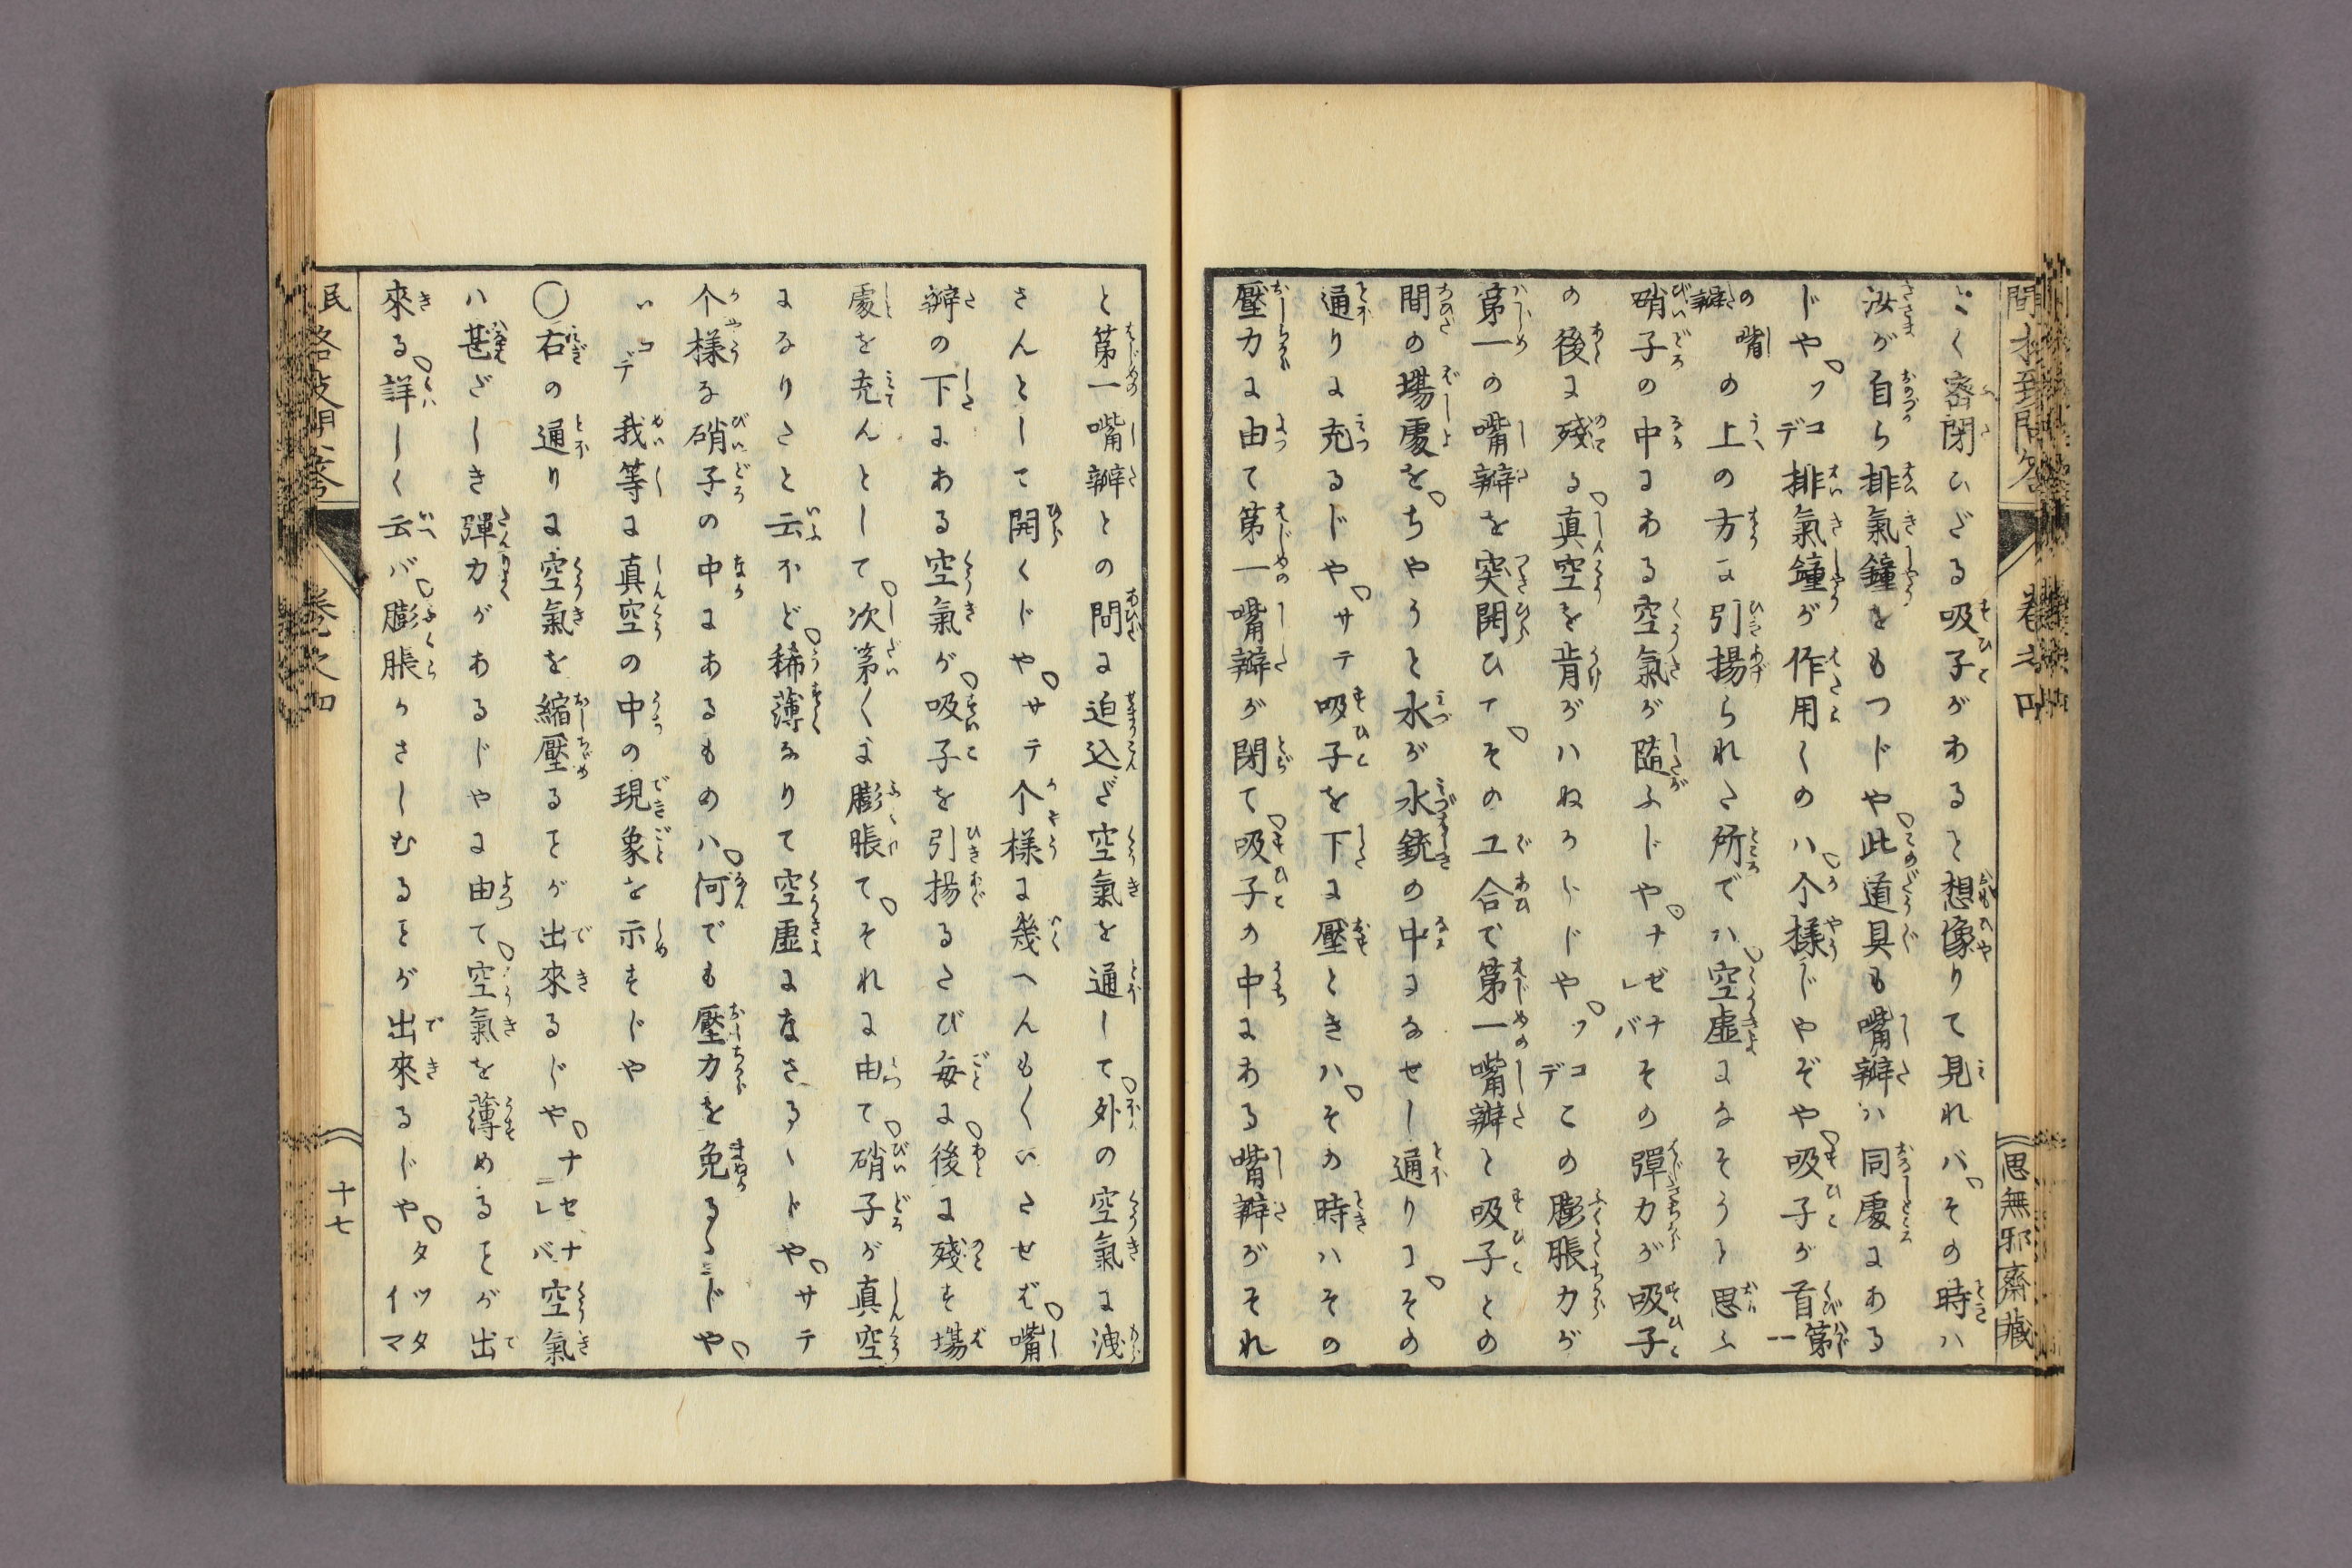 ごく密閉ひざる吸子があると想像りて見れバその時ハ
汝が自ら排氣鐘をもつドや此道具も嘴瓣ハ同處にある
じやソコデ排氣鐘が作用くのハ个樣じやぞや吸子が首第一
の嘴瓣の上の方に引揚られた所でハ空虚になそうと思ふ
硝子の中にある空氣が随ふじやナゼナレバその彈力が吸子
の後に殘る真空を肯がハねバじやソコデこの膨脹力が
第一の嘴瓣を突開ひてその工合で第一嘴瓣と吸子との
間の場處をちやうと水が水銃の中になせし通りにその
通りに充るじやサテ吸子を下に壓ときハその時ハその
壓力に由て第一嘴瓣が閉て吸子の中にある嘴瓣がそれ
と第一嘴瓣との間に迫込だ空氣を通して外の空氣に洩
さんとして開くじやサテ个樣に幾へんもくいたせば嘴
瓣の下にある空氣が吸子を引揚るたび毎に後に殘す場
處を充んとして次第くに膨脹てそれに由て硝子が真空
になりたと云ふど稀薄なりて空虚になさるゝドやサテ
个樣な硝子の中にあるものハ何でも壓力を免るゝじや
ソコデ我等に真空の中の現象を示すじや
〇右の通りに空氣を縮壓ることが出來るじやナゼナレバ空氣
ハ甚ざしき彈力があるじやに由て空氣を薄めることが出
來る詳しく云バ膨脹かさしむることが出來るじやタッタイマ
民 巻之四 十七
巻之四
思無邪齋藏